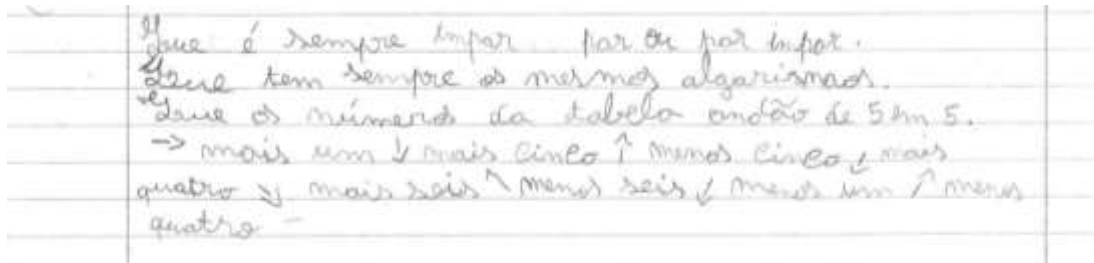 Que é sempre impar par ou par impar.
Que tem sempre os mesmos algarismos.
Que os números da tabela andão de 5 em 5.
→ mais um ↓ mais cinco ↑ menos cinco ↙ mais
quatro ↘ mais seis ↖ menos seis ↙ menos um ↗ menos
quatro